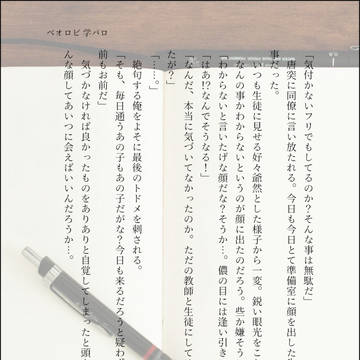 ベオロビ学パロ
「気付かないフリでもしてるのか？そんな事は無駄だ」
唐突に同僚に言い放たれる。今日も今日とて準備室に顔を出した
事だった。
いつも生徒に見せる好々爺然とした様子から一変。鋭い眼光をこ
なんの事かわからないというのが顔に出たのだろう。些か嫌そう
「わからないと言いたげな顔だな？そうか…。儂の目には逢い引き
「はあ!?なんでそうなる！」
「なんだ、本当に気づいてなかったのか。ただの教師と生徒にして
たが？」
「……。」
絶句する俺をよそに最後のトドメを刺される。
「そも、毎日通うあの子もあの子だがな？今日も来るだろうと疑わ
前もお前だ」
気づかなければ良かったものをありありと自覚してしまったと頭
んな顔してあいつに会えばいいんだろうか…。